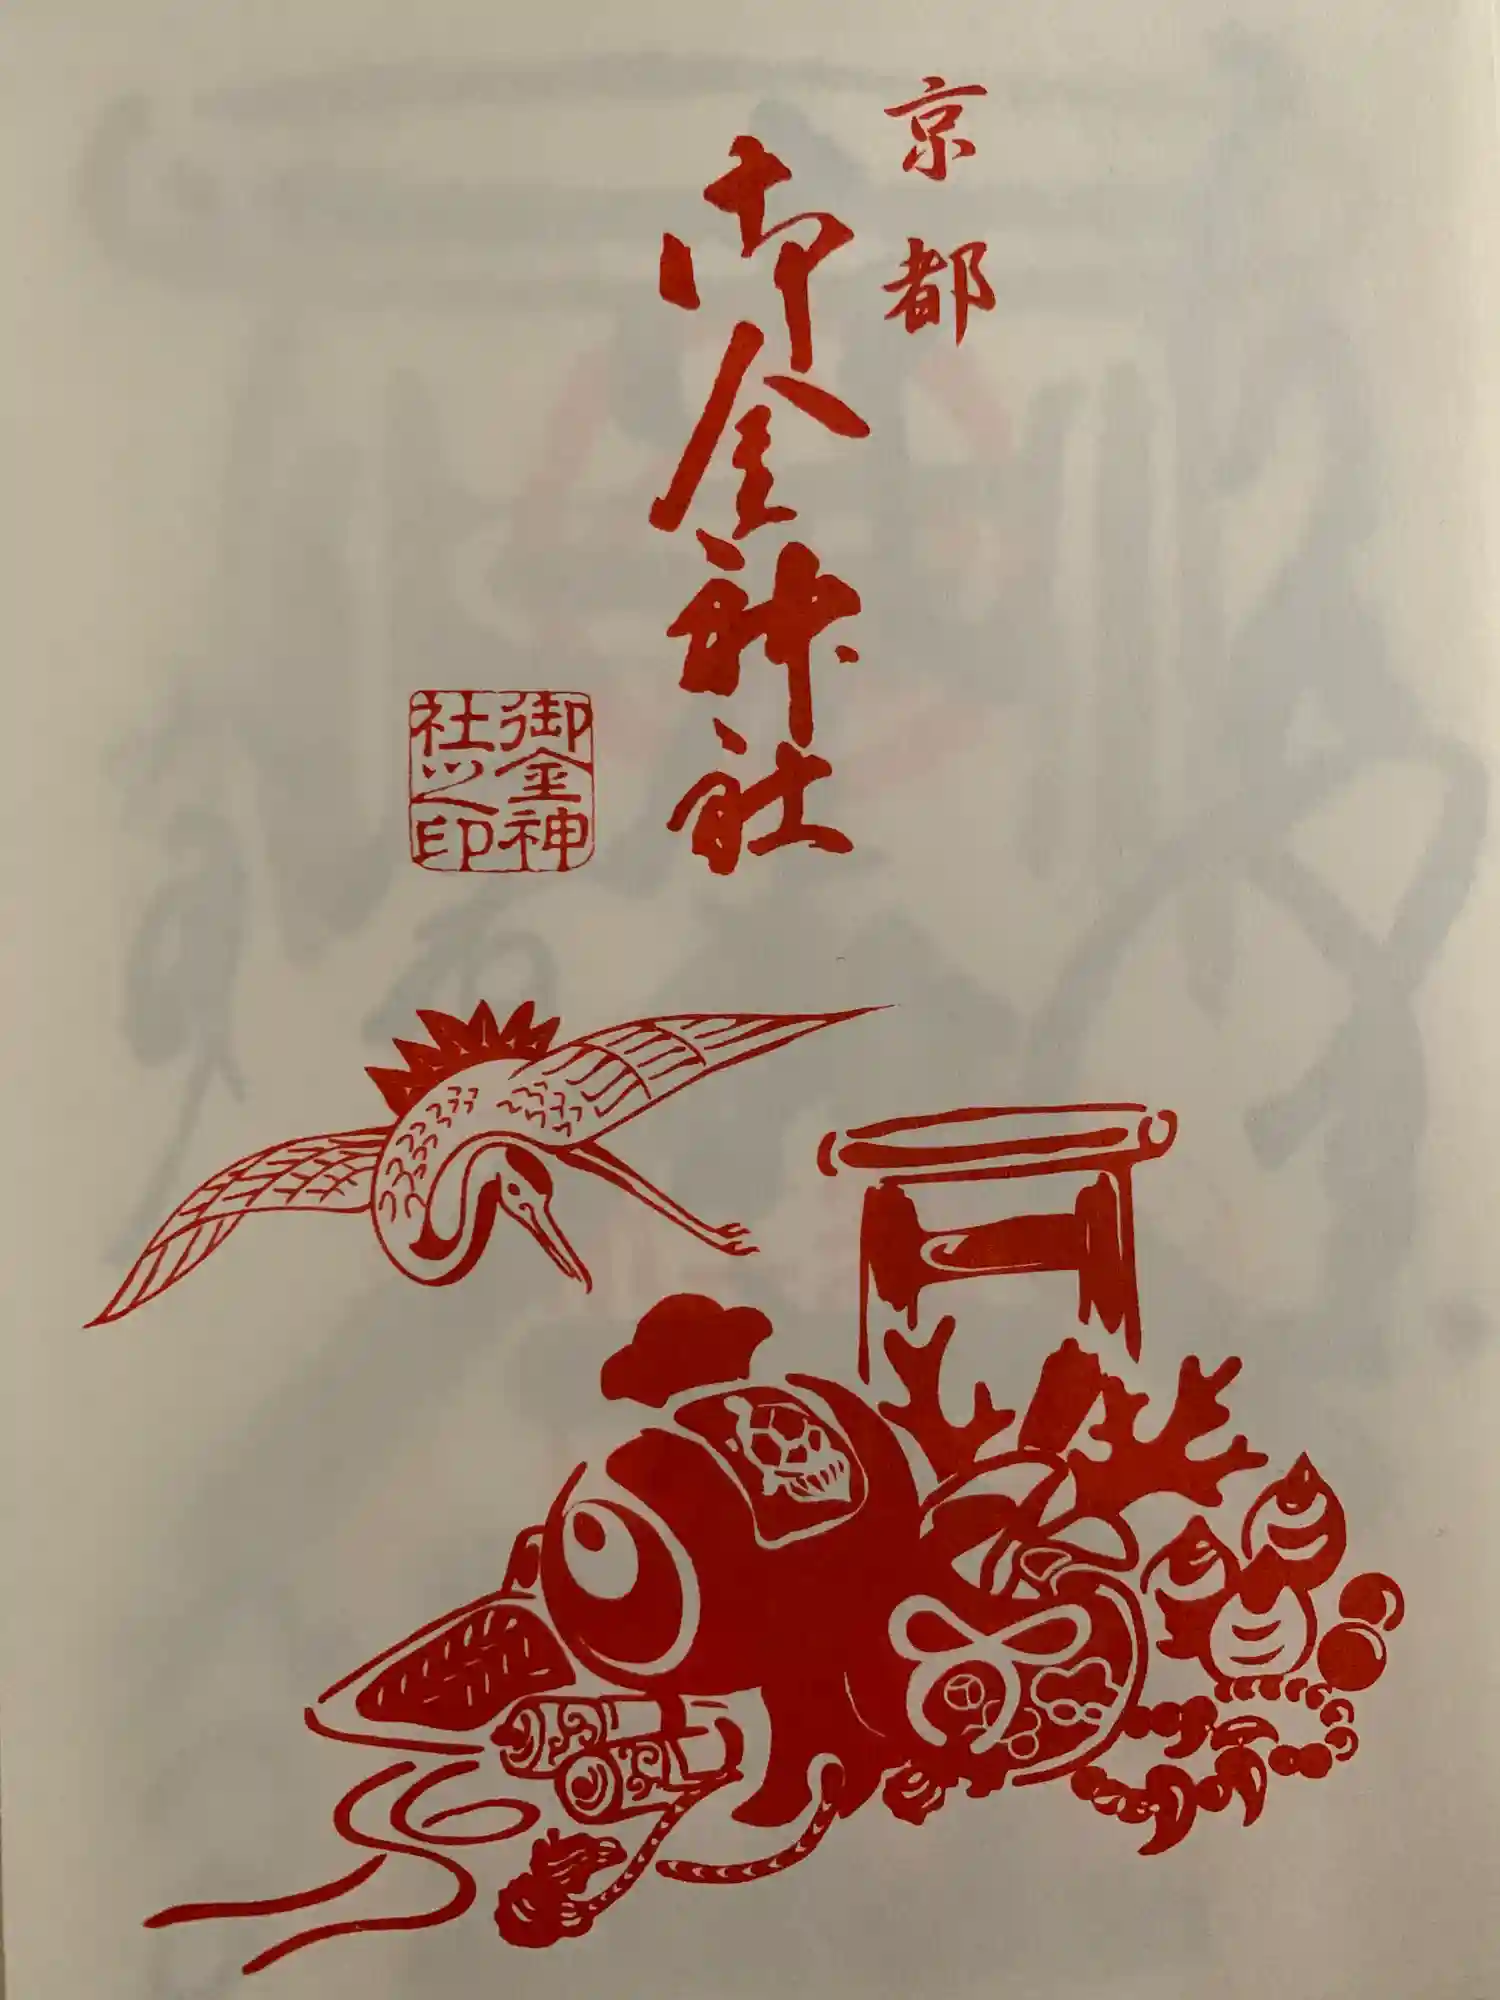 京都
御金神社
御金神
社之印